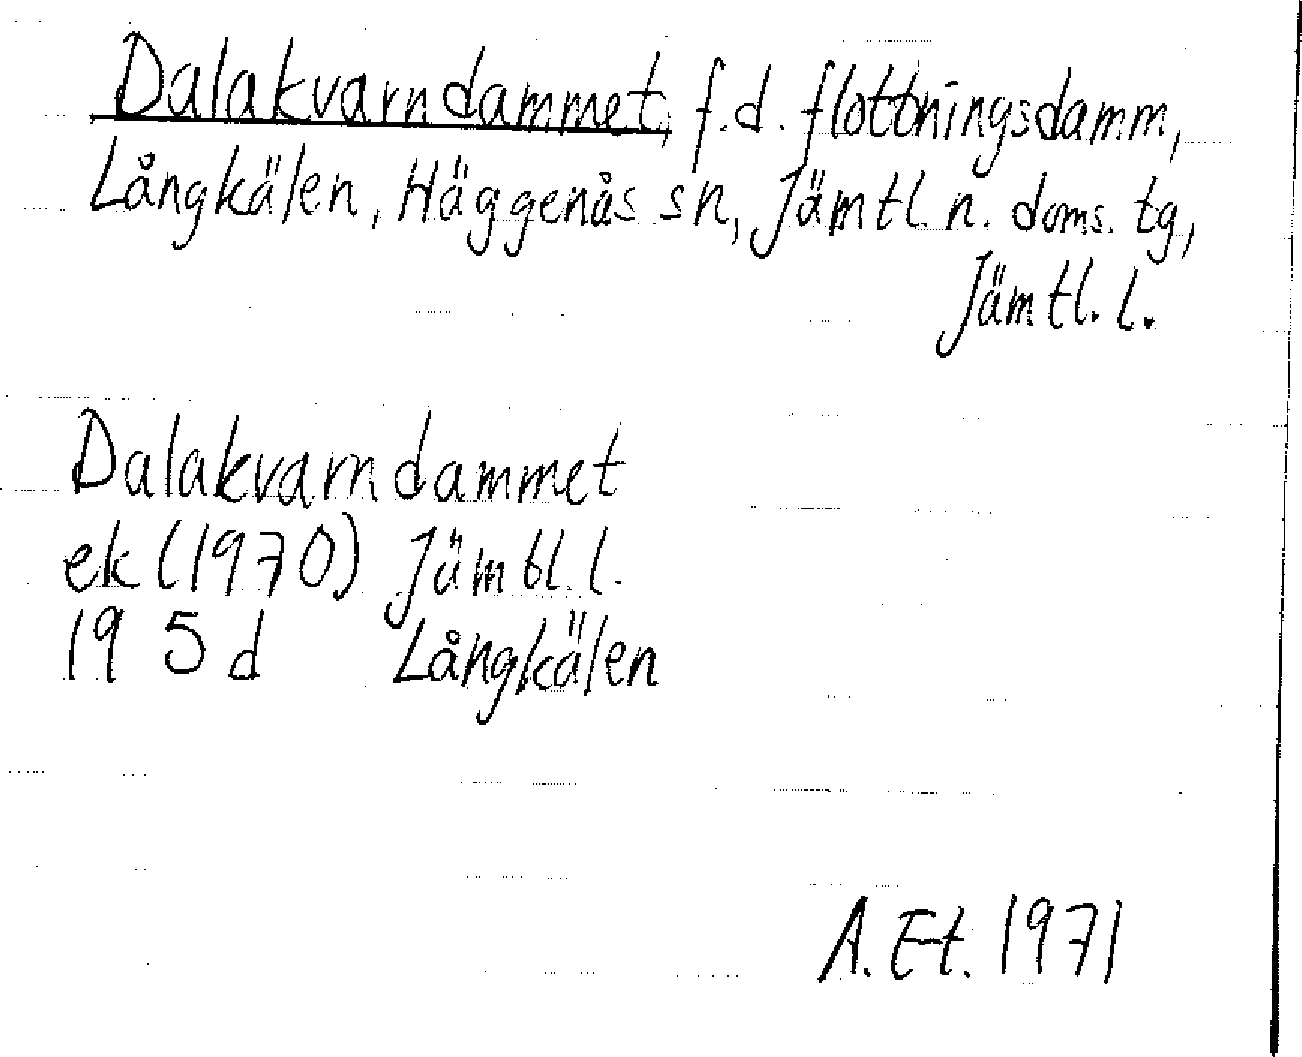 Dalakvarndammet, f.d. flottningsdamm,
Långkälen, Häggenås sn, Jämtl. n. doms. tg,
Jämtl. l.
Dalakvarndammet
ek (1970) Jämtl. l.
19 5 d Långkälen
A. Et. 1971